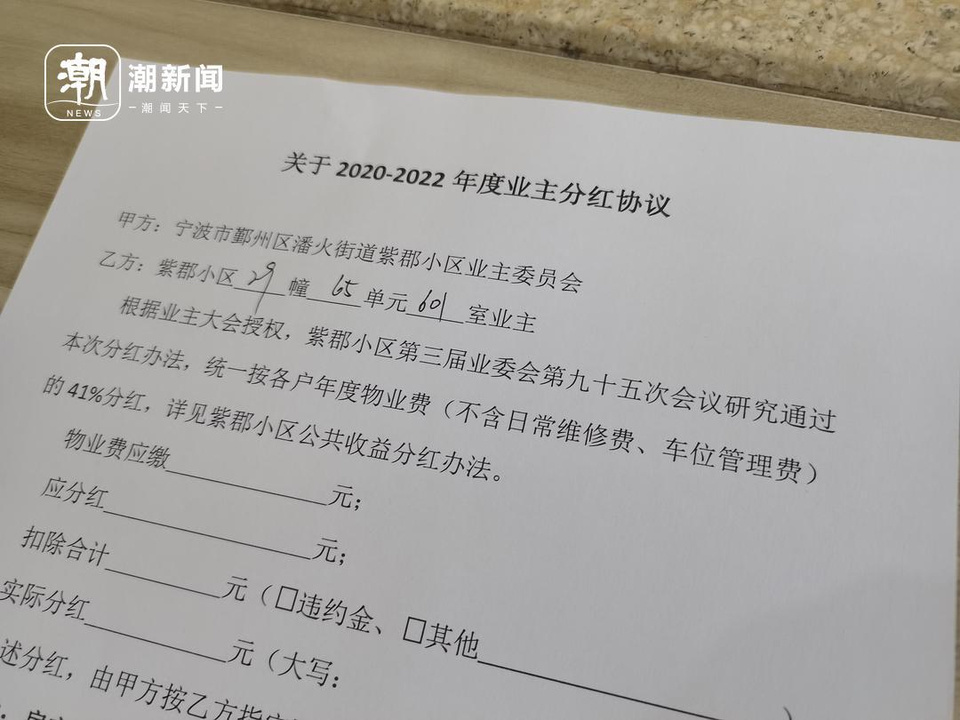 潮 潮新闻
NEWS 潮闻天下
关于 2020-2022 年度业主分红协议
甲方：宁波市鄞州区潘火街道紫郡小区业主委员会
乙方：紫郡小区 29 幢 65 单元 601 室业主
根据业主大会授权，紫郡小区第三届业委会第九十五次会议研究通过
本次分红办法，统一按各户年度物业费（不含日常维修费、车位管理费）
的 41%分红，详见紫郡小区公共收益分红办法。
物业费应缴____元；
应分红____元；
扣除合计____元（□违约金、□其他____）
实际分红____元（大写：
述分红，由甲方按乙方指定